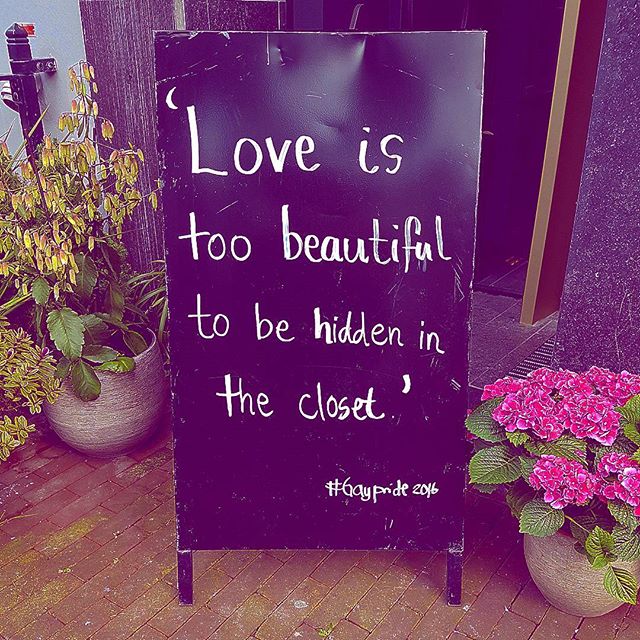 'Love is
too beautiful
to be hidden in
the closet.'
#Gaypride 2016